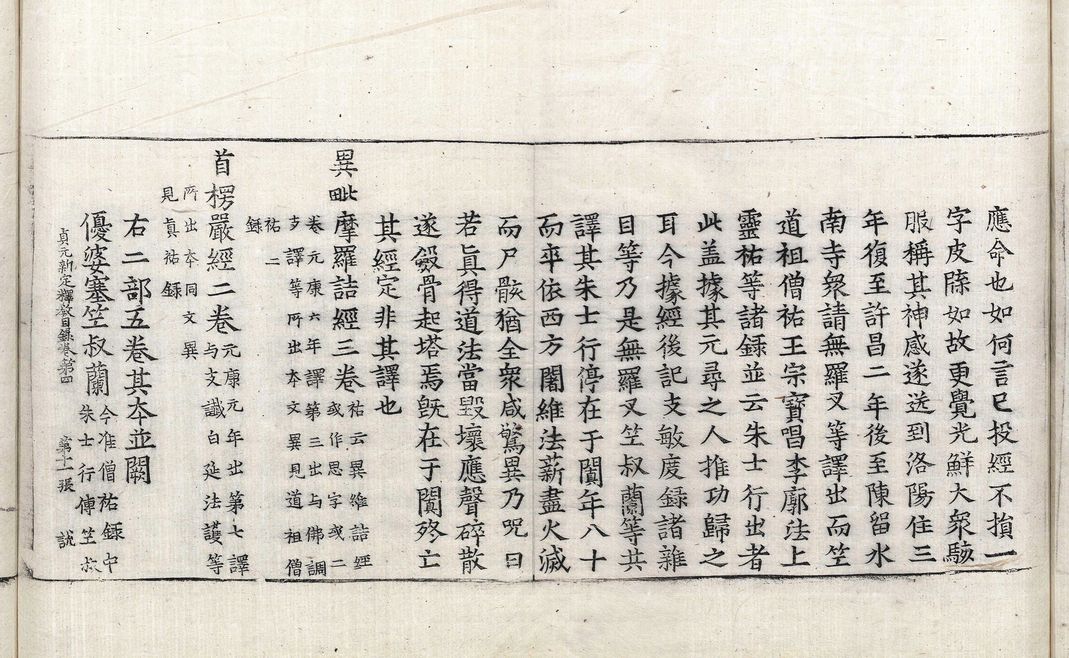 應命也如何言已投經不損一
字皮牒如故更覺光鮮大衆駭
服稱其神感遂送到洛陽住三
年復至許昌二年後至陳留水
南寺衆請無羅叉等譯出而竺
道祖僧祐王宗寶唱李廓法上
靈祐等諸録並云朱士行出者
此盖據其元尋之人推功歸之
耳今據經後記支敏度録諸雜
目等乃是無羅叉竺叔蘭等共
譯其朱士行停在于闐年八十
而卒依西方闍維法薪盡火滅
而尸骸猶全衆咸驚異乃呪曰
若眞得道法當毀壞應聲碎散
遂斂骨起塔焉旣在于闐殁亡
其經定非其譯也
異毗摩羅詰經三卷祐云異維詰經或作思字或二
卷元康六年譯第三出与佛調
支譯等所出本文異見道祖僧
祐二録
首楞嚴經二卷元康元年出第七譯与支讖白延法護等
所出本同文異
見眞祐録
右二部五卷其本並闕
優婆塞竺叔蘭今准僧祐録中朱士行傳竺叔
貞元新定釋教目録卷第四 第十一張 說